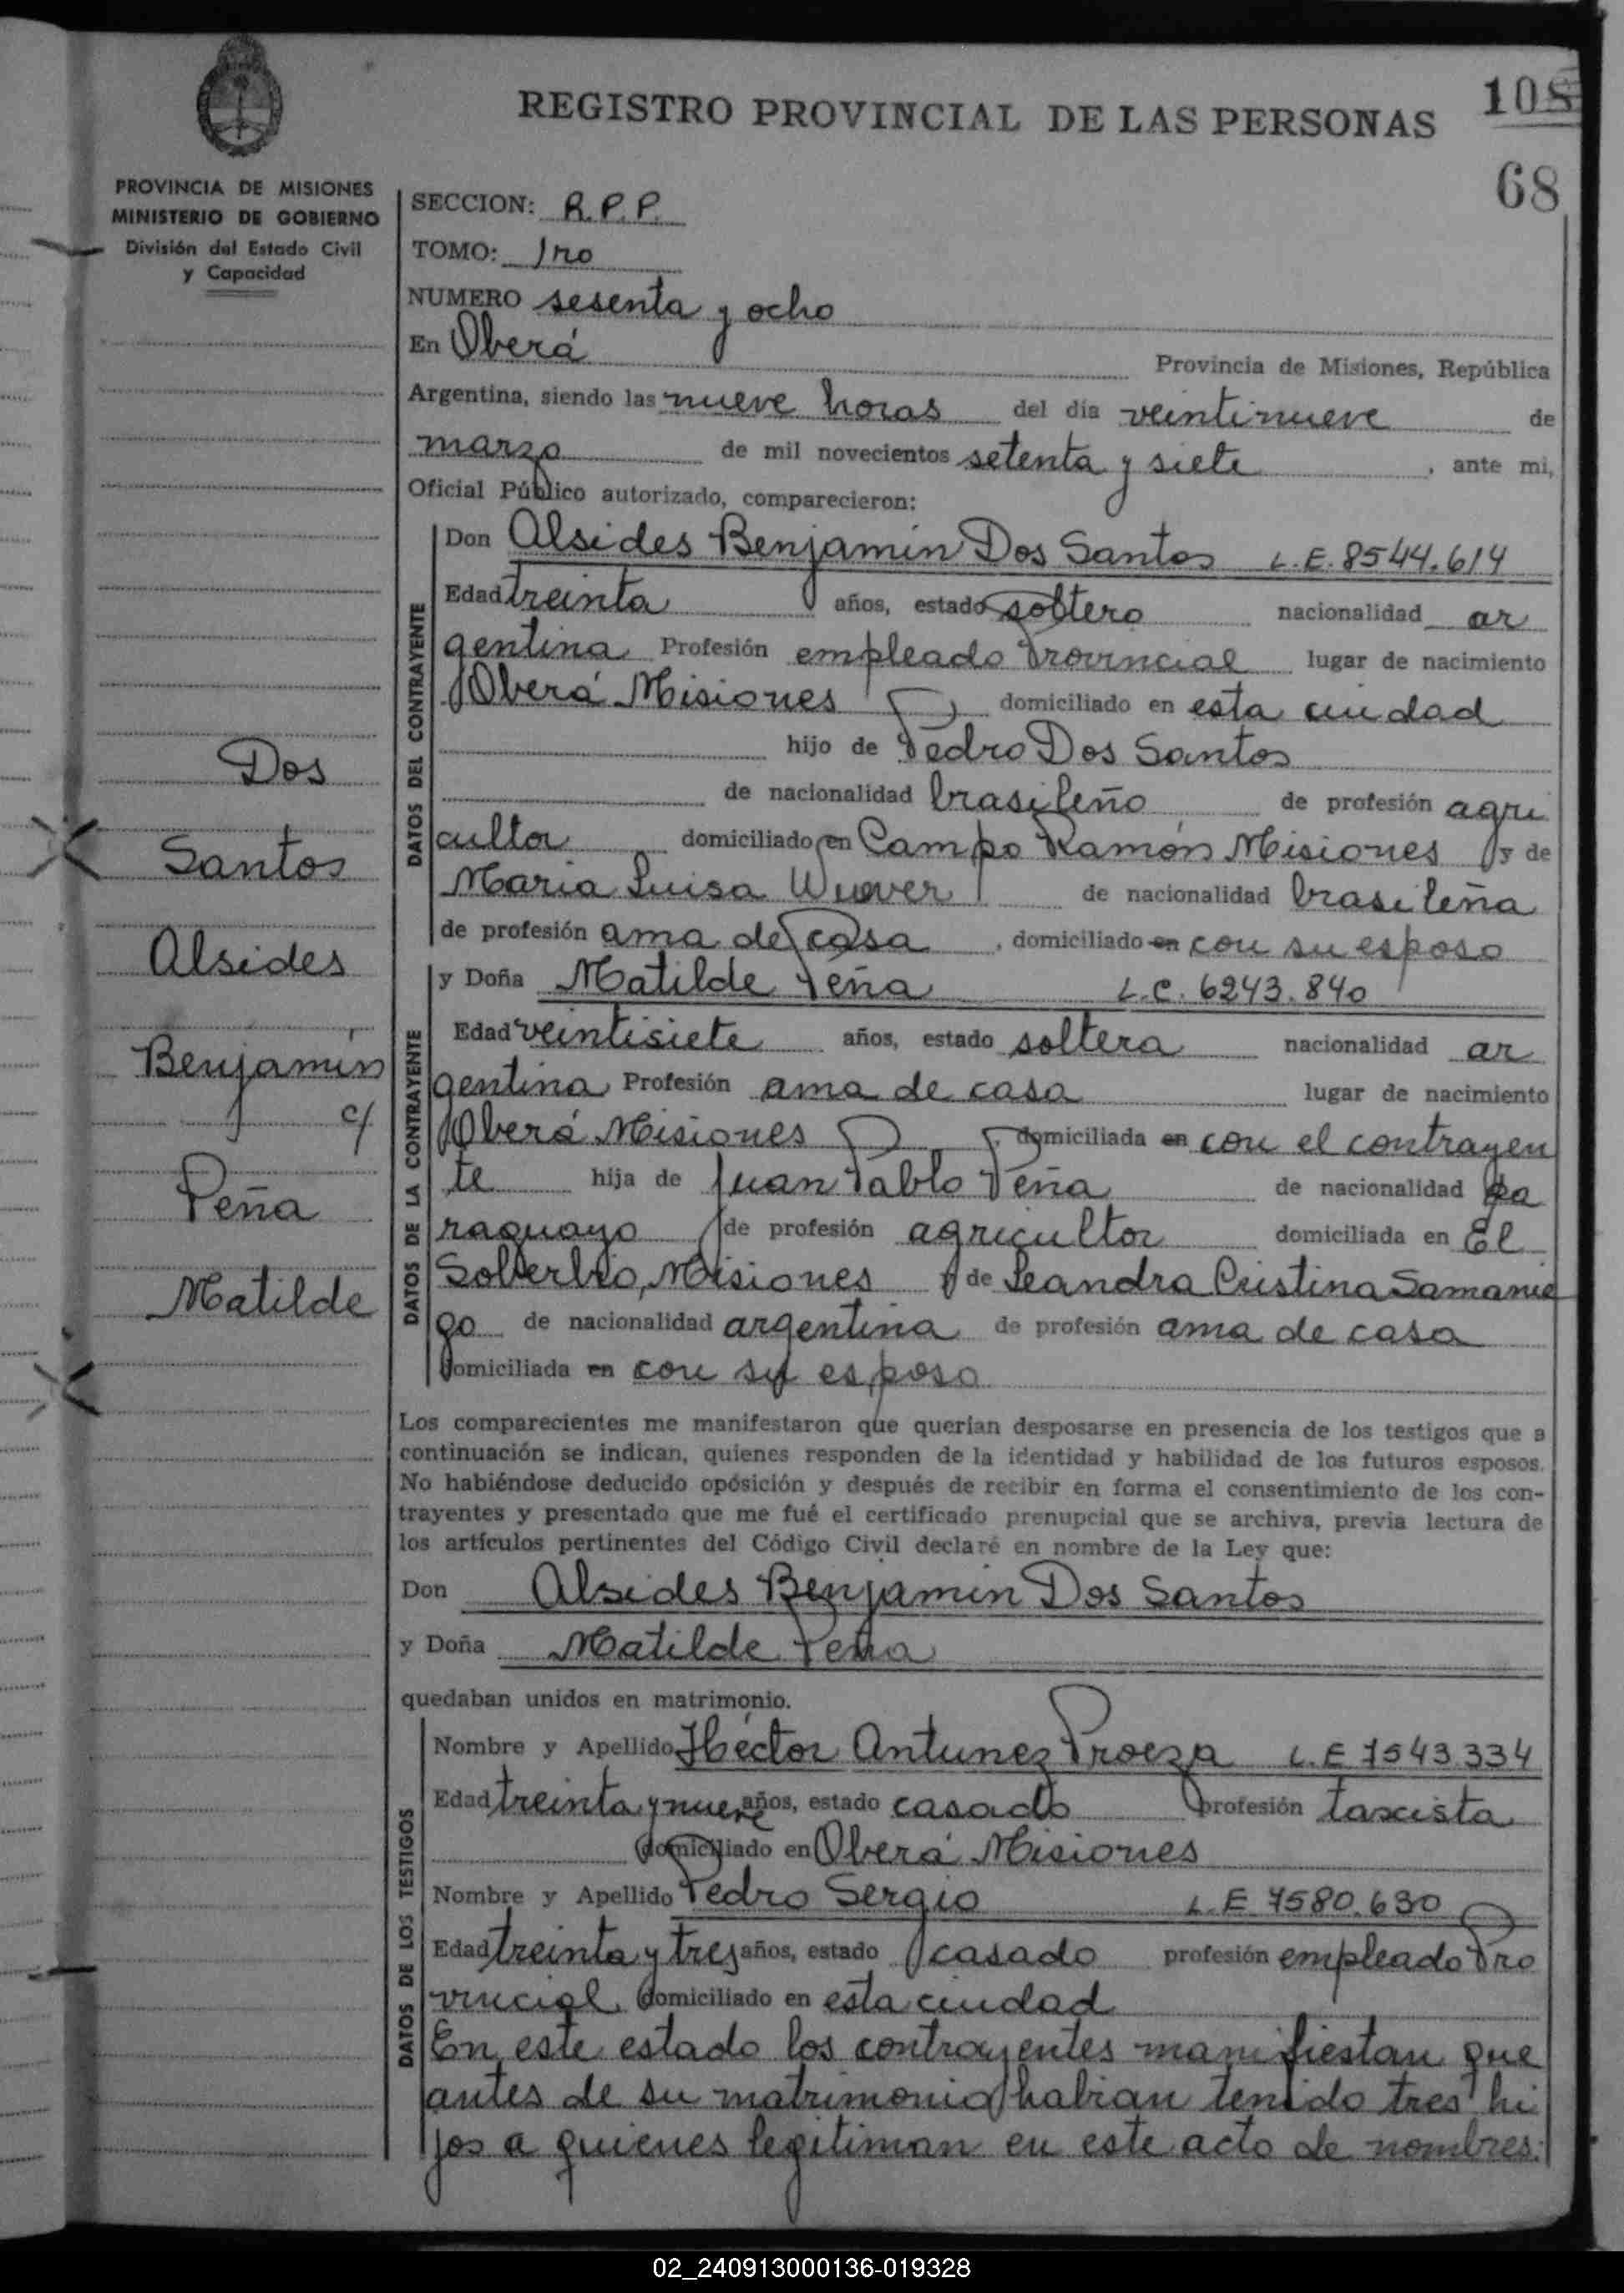 REGISTRO PROVINCIAL DE LAS PERSONAS
108
68
PROVINCIA DE MISIONES
MINISTERIO DE GOBIERNO
División del Estado Civil
y Capacidad
Dos
Santos
Alsides
Benjamín
c/
Peña
Matilde
SECCION: R.P.P.
TOMO: 1ro
NUMERO sesenta y ocho
En Oberá Provincia de Misiones, República
Argentina, siendo las nueve horas del día veintinueve de
marzo de mil novecientos setenta y siete, ante mi,
Oficial Público autorizado, comparecieron:
DATOS DEL CONTRAYENTE
Don Alsides Benjamín Dos Santos L.E. 8544.614
Edad treinta años, estado soltero nacionalidad ar
gentina Profesión empleado Provincial lugar de nacimiento
Oberá Misiones domiciliado en esta ciudad
hijo de Pedro Dos Santos
de nacionalidad brasileño de profesión agri
cultor domiciliado en Campo Ramón Misiones y de
Maria Luisa Wuover de nacionalidad brasileña
de profesión ama de casa, domiciliado en con su esposo
DATOS DE LA CONTRAYENTE
y Doña Matilde Peña L.C. 6243.840
Edad veintisiete años, estado soltera nacionalidad ar
gentina Profesión ama de casa lugar de nacimiento
Oberá Misiones, domiciliada en con el contrayen
te hija de Juan Pablo Peña de nacionalidad pa
raguayo de profesión agricultor domiciliada en El
Solberbio, Misiones y de Leandra Cristina Samanie
go de nacionalidad argentina de profesión ama de casa
domiciliada en con su esposo
Los comparecientes me manifestaron que querían desposarse en presencia de los testigos que a
continuación se indican, quienes responden de la identidad y habilidad de los futuros esposos.
No habiéndose deducido opósición y después de recibir en forma el consentimiento de los con-
trayentes y presentado que me fué el certificado prenupcial que se archiva, previa lectura de
los artículos pertinentes del Código Civil declaré en nombre de la Ley que:
Don Alsides Benjamin Dos Santos
y Doña Matilde Peña
quedaban unidos en matrimonio.
DATOS DE LOS TESTIGOS
Nombre y Apellido Héctor Antunez Proeza L.E 7543.334
Edad treinta y nueve años, estado casado profesión taxista
domiciliado en Oberá Misiones
Nombre y Apellido Pedro Sergio L.E 7580.630
Edad treinta y tres años, estado casado profesión empleado Pro
vincial domiciliado en esta ciudad
En este estado los contrayentes manifiestan que
antes de su matrimonio habian tenido tres hi
jos a quienes legitiman en este acto de nombres:
02_240913000136-019328